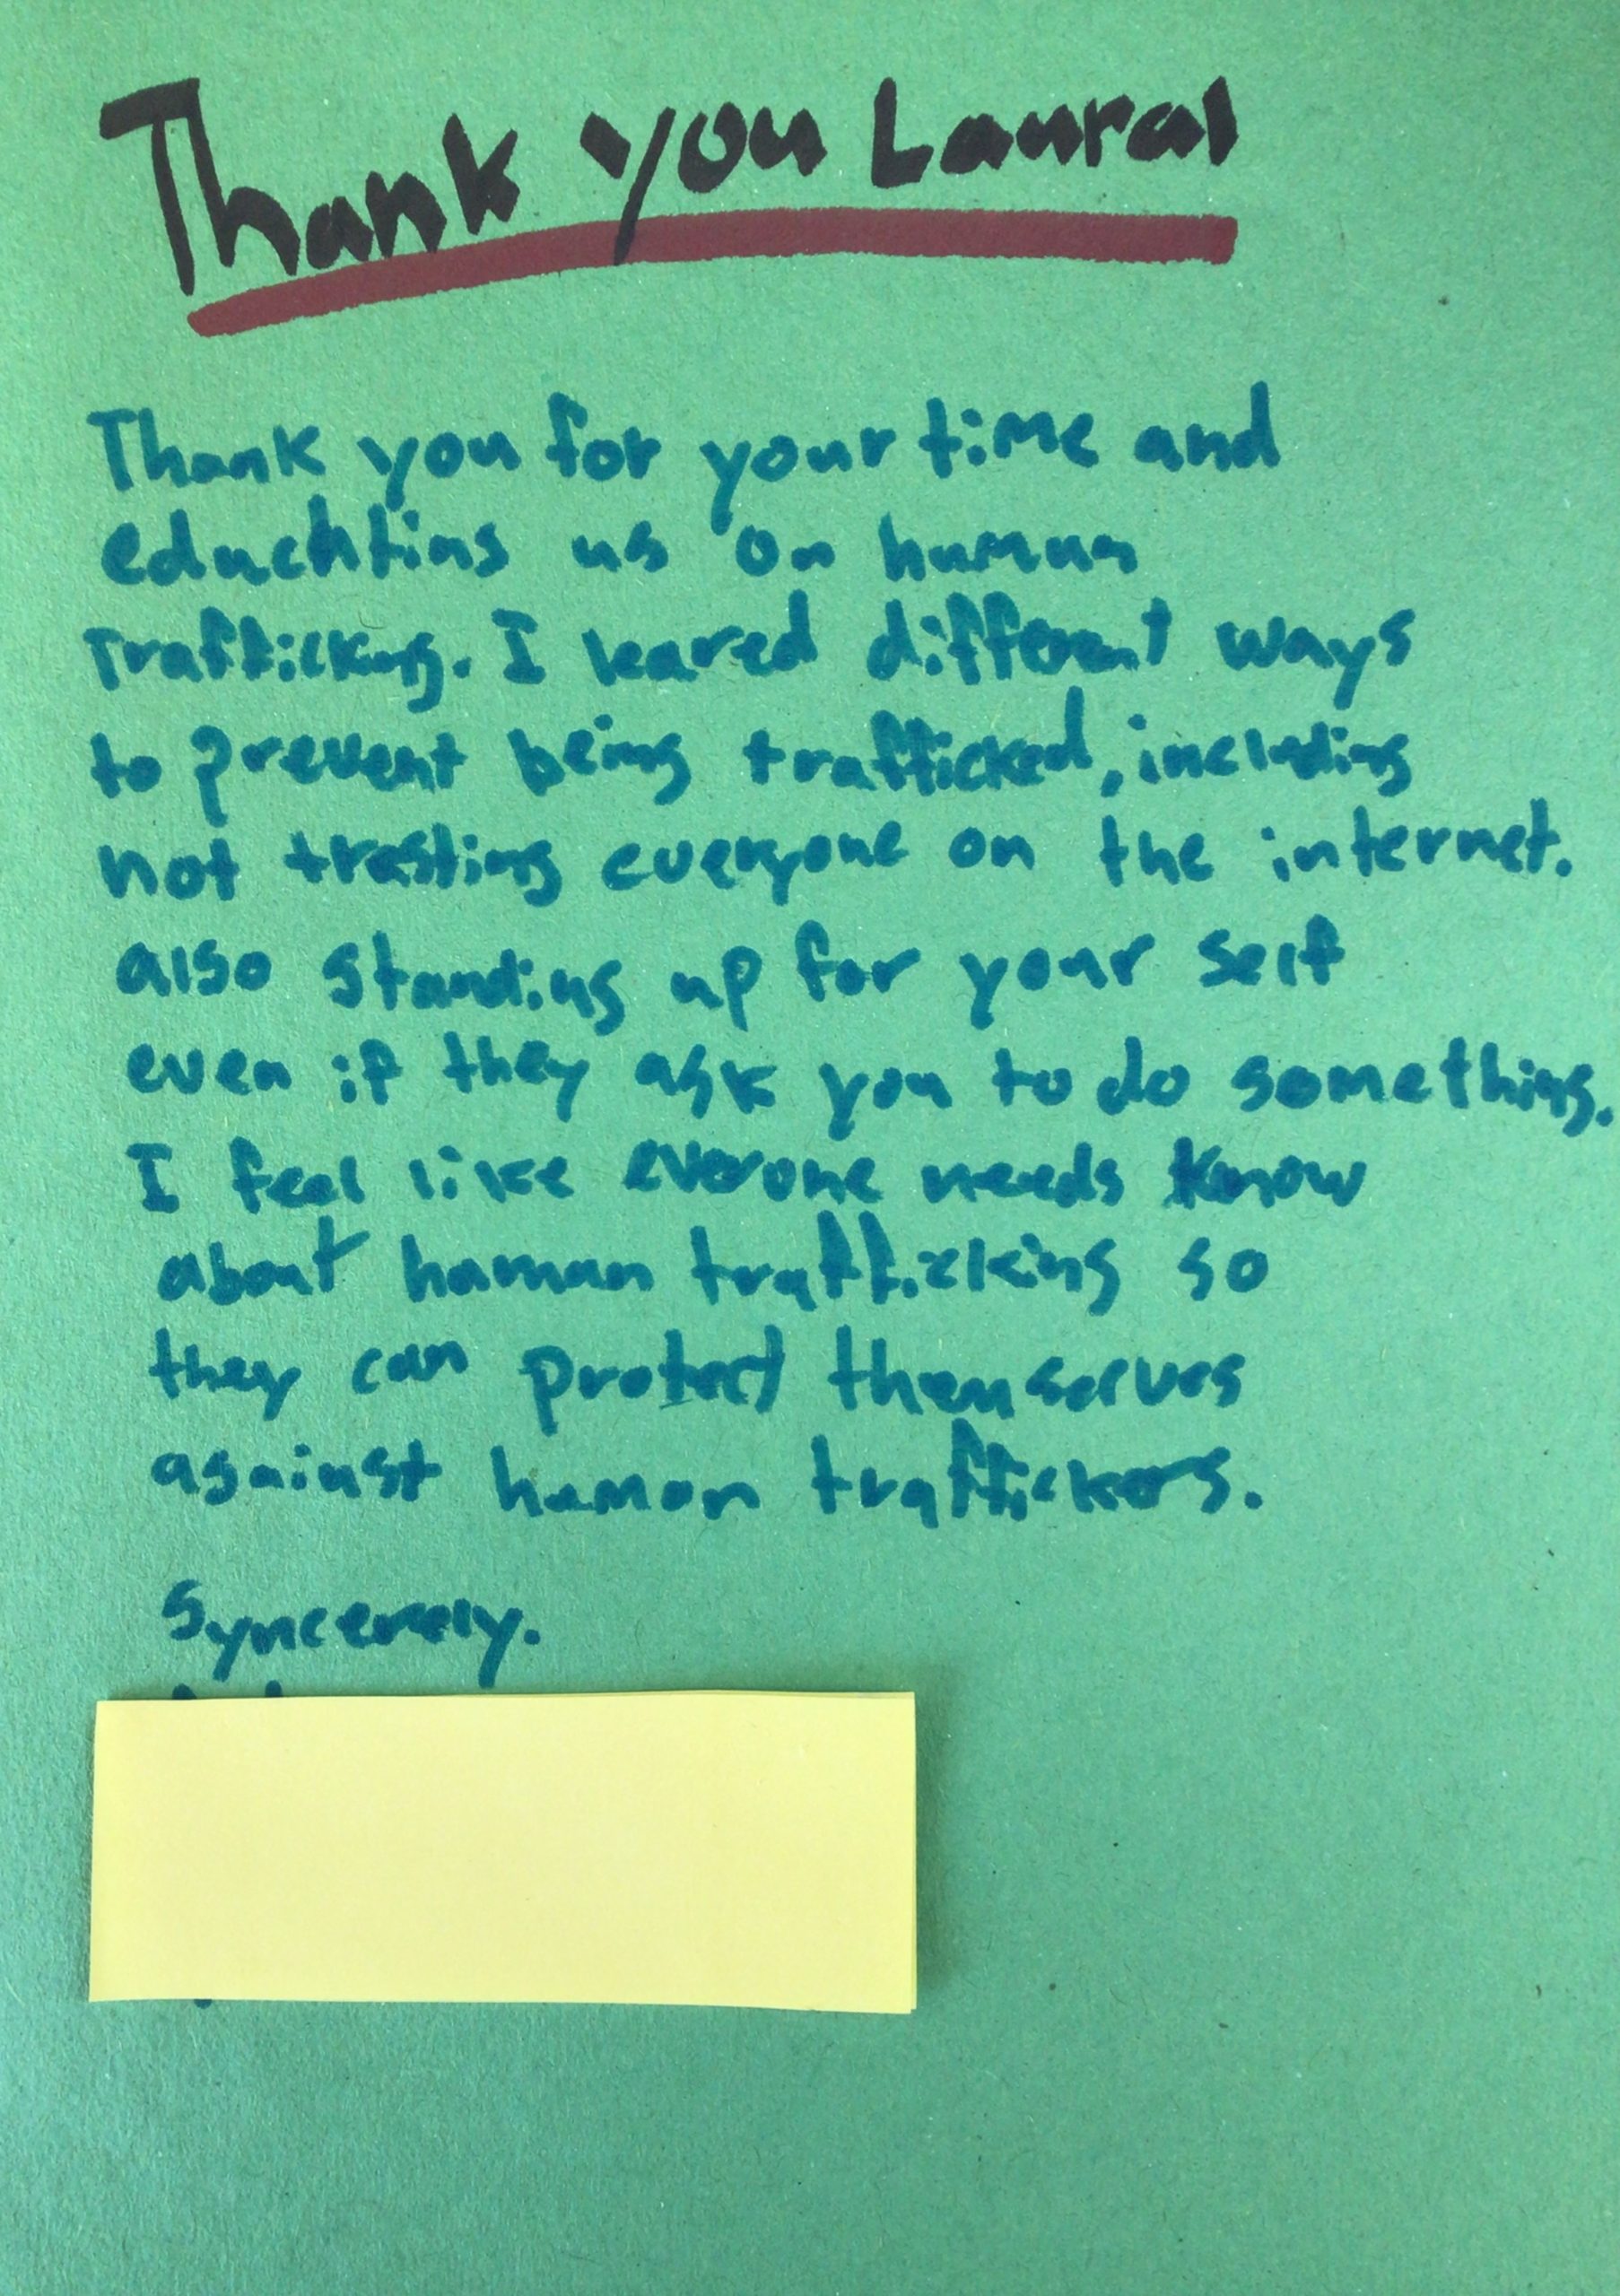 Thank you Laural
Thank you for your time and
educhting us on human
trafficking. I leared different ways
to prevent being trafficked, including
not trasting everyone on the internet.
also standing up for your self
even if they ask you to do something.
I feel like everone needs know
about haman trafficking so
they can protect themserves
against haman traffickers.
Syncerely.